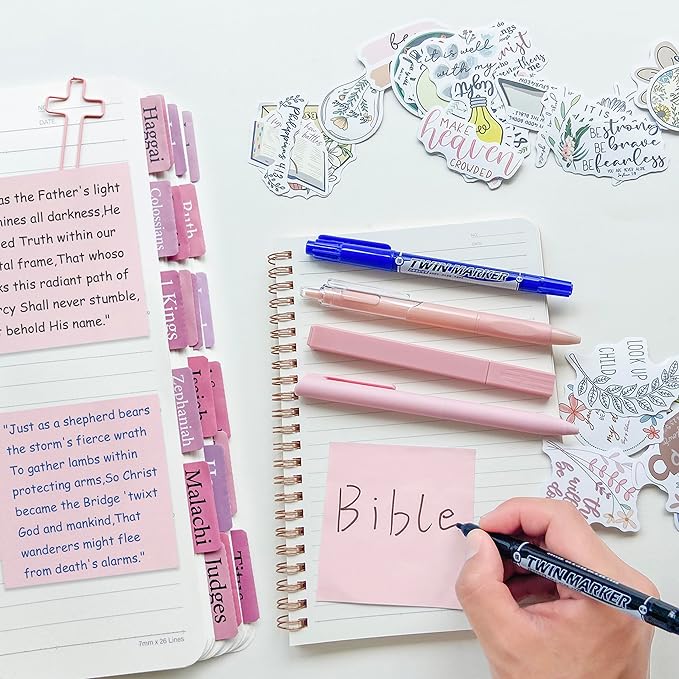 NO
DATE
as the Father's light
nines all darkness,He
ed Truth within our
tal frame,That whoso
ks this radiant path of
rcy Shall never stumble,
t behold His name."
"Just as a shepherd bears
the storm's fierce wrath
To gather lambs within
protecting arms,So Christ
became the Bridge 'twixt
God and mankind,That
wanderers might flee
from death's alarms."
7mm x 26 Lines
Haggai
Colossians
Ruth
1 Kings
Zephaniah
Malachi
Judges
Titus
it is well
with my
MAKE
heaven
CROWDED
BE
strong
BE
brave
BE
fearless
LOOK UP
CHILD
TWIN MARKER
Bible
TWIN MARKER